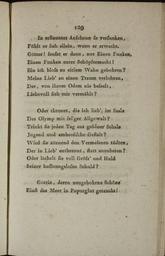 129
In erstauntes Anschauen so versunken,
Fühlt er sich allein, wenn er erwacht.
Götter! sendet er denn, nur Einen Funken,
Einen Funken eurer Schöpfermacht!
Bin ich bloß zu eitlem Wahn geboren?
Meine Lieb' an einen Traum verloren,
Der, von ihrem Odem nie beseelt,
Liebevoll sich mir vermählt?
Oder thronet, die ich lieb', im Saale
Des Olymp mit sel'ger Allgewalt?
Trinkt sie jeden Tag aus goldner Schale
Jugend und ambrosische Gestalt?
Wird sie zürnend den Vermessnen tödten,
Der in Lieb' entbrennt, statt anzubeten?
Oder lächelt sie voll Huld
der hoffnungslosen Schuld?
Göttin, deren neugebornen Schöne
Einst das Meer in Purpurglut getaucht!